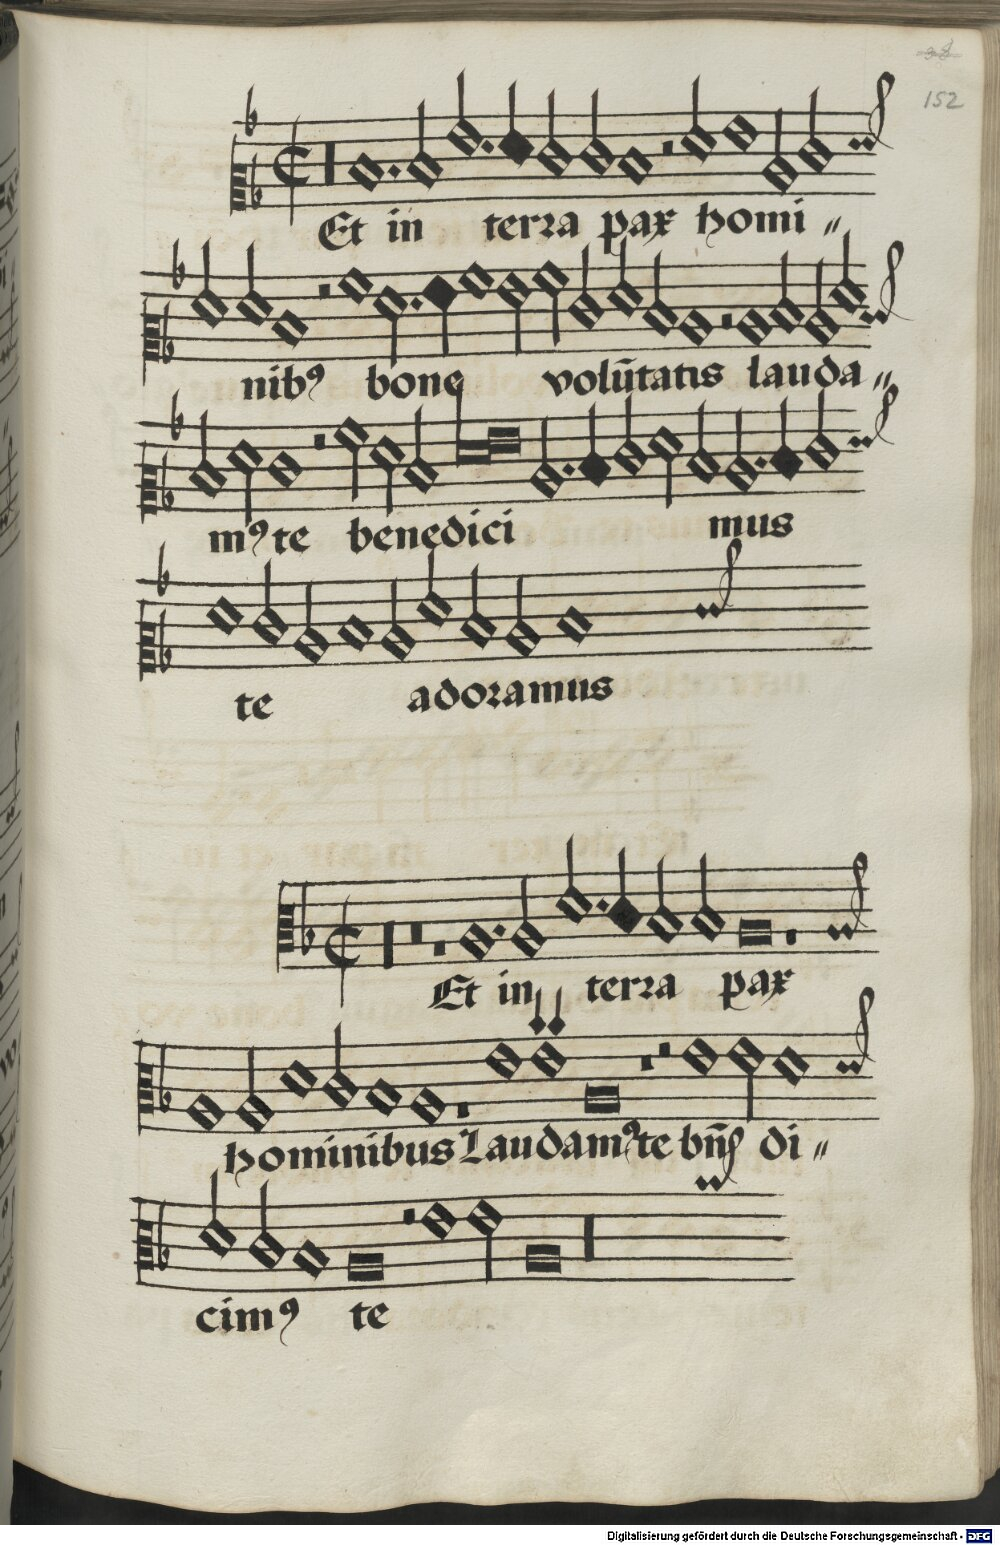 152
Et in terra pax homi〃
nibꝰ bone volūtatis lauda〃
mꝰ te benedici mus
te adoramus
Et in terra pax
hominibus Laudamꝰ te bn̄e di〃
cimꝰ te
Digitalisierung gefördert durch die Deutsche Forschungsgemeinschaft - DFG